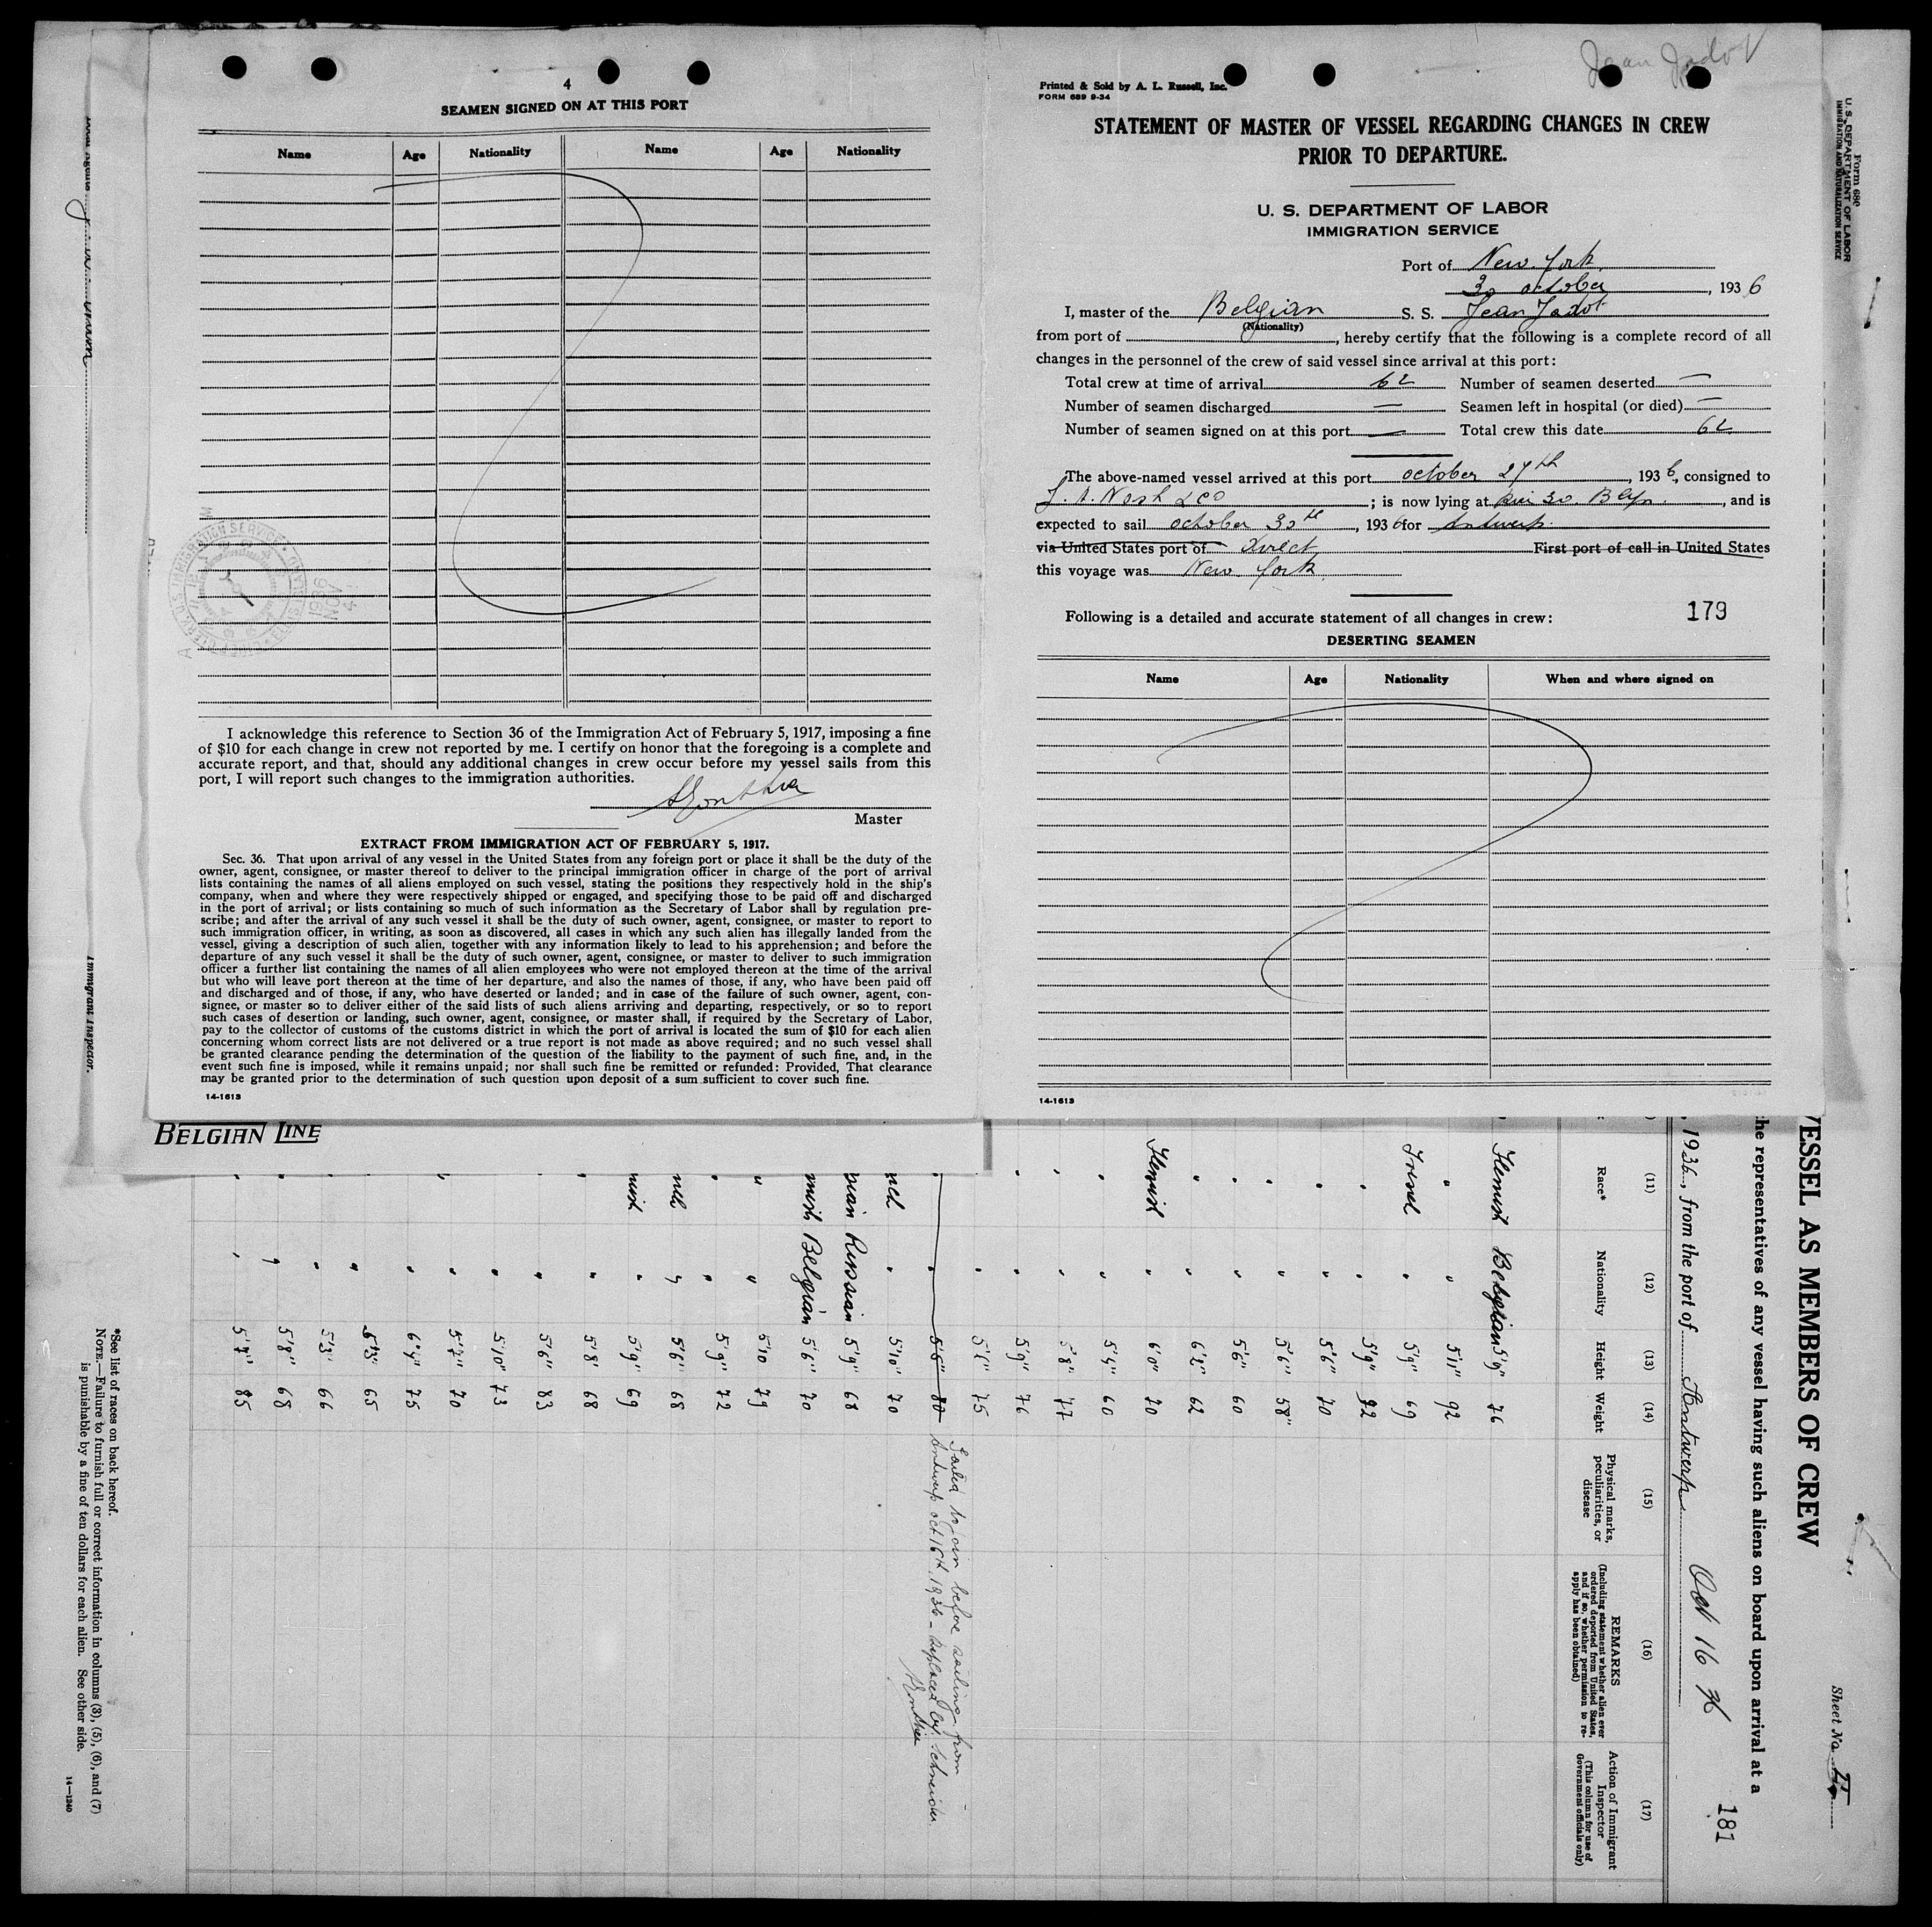 4
SEAMEN SIGNED ON AT THIS PORT
Name Age Nationality Name Age Nationality
I acknowledge this reference to Section 36 of the Immigration Act of February 5, 1917, imposing a fine
of $10 for each change in crew not reported by me. I certify on honor that the foregoing is a complete and
accurate report, and that, should any additional changes in crew occur before my vessel sails from this
port, I will report such changes to the immigration authorities.
Master
EXTRACT FROM IMMIGRATION ACT OF FEBRUARY 5, 1917.
Sec. 36. That upon arrival of any vessel in the United States from any foreign port or place it shall be the duty of the
owner, agent, consignee, or master thereof to deliver to the principal immigration officer in charge of the port of arrival
lists containing the names of all aliens employed on such vessel, stating the positions they respectively hold in the ship's
company, when and where they were respectively shipped or engaged, and specifying those to be paid off and discharged
in the port of arrival; or lists containing so much of such information as the Secretary of Labor shall by regulation pre-
scribe; and after the arrival of any such vessel it shall be the duty of such owner, agent, consignee, or master to report to
such immigration officer, in writing, as soon as discovered, all cases in which any such alien has illegally landed from the
vessel, giving a description of such alien, together with any information likely to lead to his apprehension; and before the
departure of any such vessel it shall be the duty of such owner, agent, consignee, or master to deliver to such immigration
officer a further list containing the names of all alien employees who were not employed thereon at the time of the arrival
but who will leave port thereon at the time of her departure, and also the names of those, if any, who have been paid off
and discharged and of those, if any, who have deserted or landed; and in case of the failure of such owner, agent, con-
signee, or master so to deliver either of the said lists of such aliens arriving and departing, respectively, or so to report
such cases of desertion or landing, such owner, agent, consignee, or master shall, if required by the Secretary of Labor,
pay to the collector of customs of the customs district in which the port of arrival is located the sum of $10 for each alien
concerning whom correct lists are not delivered or a true report is not made as above required; and no such vessel shall
be granted clearance pending the determination of the question of the liability to the payment of such fine, and, in the
event such fine is imposed, while it remains unpaid; nor shall such fine be remitted or refunded: Provided, That clearance
may be granted prior to the determination of such question upon deposit of a sum sufficient to cover such fine.
14-1613
Jean Jadot
Printed & Sold by A. L. Russell, Inc.
FORM 689 9-34
STATEMENT OF MASTER OF VESSEL REGARDING CHANGES IN CREW
PRIOR TO DEPARTURE.
U. S. DEPARTMENT OF LABOR
IMMIGRATION SERVICE
Port of New York
30 october, 1936
I, master of the Belgian S. S. Jean Jadot
(Nationality)
from port of , hereby certify that the following is a complete record of all
changes in the personnel of the crew of said vessel since arrival at this port:
Total crew at time of arrival 62 Number of seamen deserted —
Number of seamen discharged — Seamen left in hospital (or died) —
Number of seamen signed on at this port — Total crew this date 62
The above-named vessel arrived at this port october 27th, 1936, consigned to
; is now lying at 30 , and is
expected to sail october 30th, 1936 for Antwerp
via United States port of Direct First port of call in United States
this voyage was New York
Following is a detailed and accurate statement of all changes in crew: 179
DESERTING SEAMEN
Name Age Nationality When and where signed on
14-1613
Form 689
U. S. DEPARTMENT OF LABOR
IMMIGRATION AND NATURALIZATION SERVICE
Immigrant Inspector.
BELGIAN LINE
Sheet No.
181
VESSEL AS MEMBERS OF CREW
he representatives of any vessel having such aliens on board upon arrival at a
, 1936, from the port of Antwerp Oct 16 36
(11) (12) (13) (14) (15) (16) (17)
Race* Nationality Height Weight
Physical marks, peculiarities, or disease
REMARKS
(Including statement whether alien ever ordered deported from United States, and if so, whether permission to reapply has been obtained)
Action of Immigrant Inspector
(This column for use of Government officials only)
Flemish Belgian 5'9" 76
" " 5'11" 92
French " 5'9" 69
" " 5'9"
" " 5'6" 70
" " 5'6" 58
" " 5'6" 60
" " 6'2" 62
Flemish " 6'0" 70
" " 5'4" 60
" " 5'8" 77
" " 5'9" 76
" " 75
5'5" 80 Failed to join before sailing from
Antwerp oct 16th 1936 - replaced by Schneider
" 5'10" 70
Russian 5'9" 68
Belgian 5'6" 70
" " 5'10 79
" 5'9" 72
" 5'6" 68
" 5'9" 69
" 5'8" 68
" 5'6" 83
" 5'10" 73
" " 5'7" 70
" 6'4" 75
" 5'3" 65
" " 5'3" 66
" " 5'8" 68
" " 5'7" 85
*See list of races on back hereof.
NOTE.—Failure to furnish full or correct information in columns (3), (5), (6), and (7)
is punishable by a fine of ten dollars for each alien. See other side.
14—1240